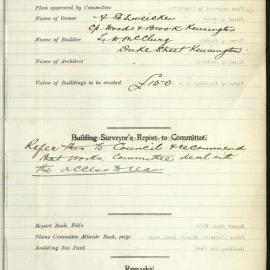 Plan approved by Committee
Name of Owner A Schweicke
Cp. Woods & Brook Kensington
Name of Builder L. H. McClurg
Duke Street Kensington
Name of Architect
Value of Buildings to be erected £150
Building Surveyor's Report to Committee:
Refer this to Council & recommend
that Works Committee deal with
the access to rear
Report Book, Folio
Plans Committee Minute Book, page
Building Fee Paid
Remarks: